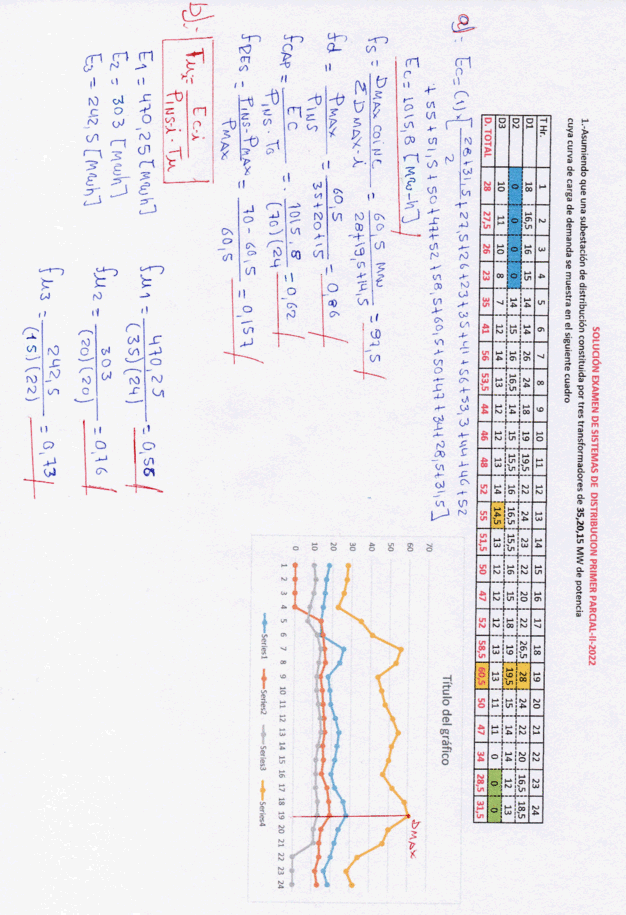 SOLUCIÓN EXAMEN DE SISTEMAS DE DISTRIBUCION PRIMER PARCIAL-II-2022
1.-Asumiendo que una subestación de distribución constituida por tres transformadores de 35,20,15 MW de potencia
cuya curva de carga de demanda se muestra en el siguiente cuadro
T Hr. 1 2 3 4 5 6 7 8 9 10 11 12 13 14 15 16 17 18 19 20 21 22 23 24
D1 18 16,5 16 15 14 14 26 24 18 19 19,5 22 24 23 22 20 22 26,5 28 24 22 20 16,5 18,5
D2 0 0 0 0 14 15 16 16,5 14 15 15,5 16 16,5 15,5 16 15 18 19 19,5 15 14 14 12 13
D3 10 11 10 8 7 12 14 13 12 12 13 14 14,5 13 12 12 12 13 13 11 11 0 0 0
D. TOTAL 28 27,5 26 23 35 41 56 53,5 44 46 48 52 55 51,5 50 47 52 58,5 60,5 50 47 34 28,5 31,5
a): Ec= (1) [ 28+31,5 / 2 + 27,5+26+23+35+41+56+53,3+44+46+52
+55+51,5+50+47+52+58,5+60,5+50+47+34+28,5+31,5]
Ec=1015,8 [MW-h]
fs = DMAX COINC / ΣDMAX-i = 60,5 MW / 28+19,5+14,5 = 97,5
fd = PMAX / PINS = 60,5 / 35+20+15 = 0,86
fCAP = EC / PINS · TO = 1015,8 / (70)(24 = 0,62
fRES = PINS-PMAX / PMAX = 70-60,5 / 60,5 = 0,157
b): Fui = Ec-i / PINS-i Tu
E1 = 470,25 [MWh]
E2 = 303 [MWh]
E3 = 242,5 [MWh]
fu1 = 470,25 / (35)(24) = 0,56
fu2 = 303 / (20)(20) = 0,76
fu3 = 242,5 / (15)(22) = 0,73
Título del gráfico
DMAX
70
60
50
40
30
20
10
0
1 2 3 4 5 6 7 8 9 10 11 12 13 14 15 16 17 18 19 20 21 22 23 24
Series1 Series2 Series3 Series4